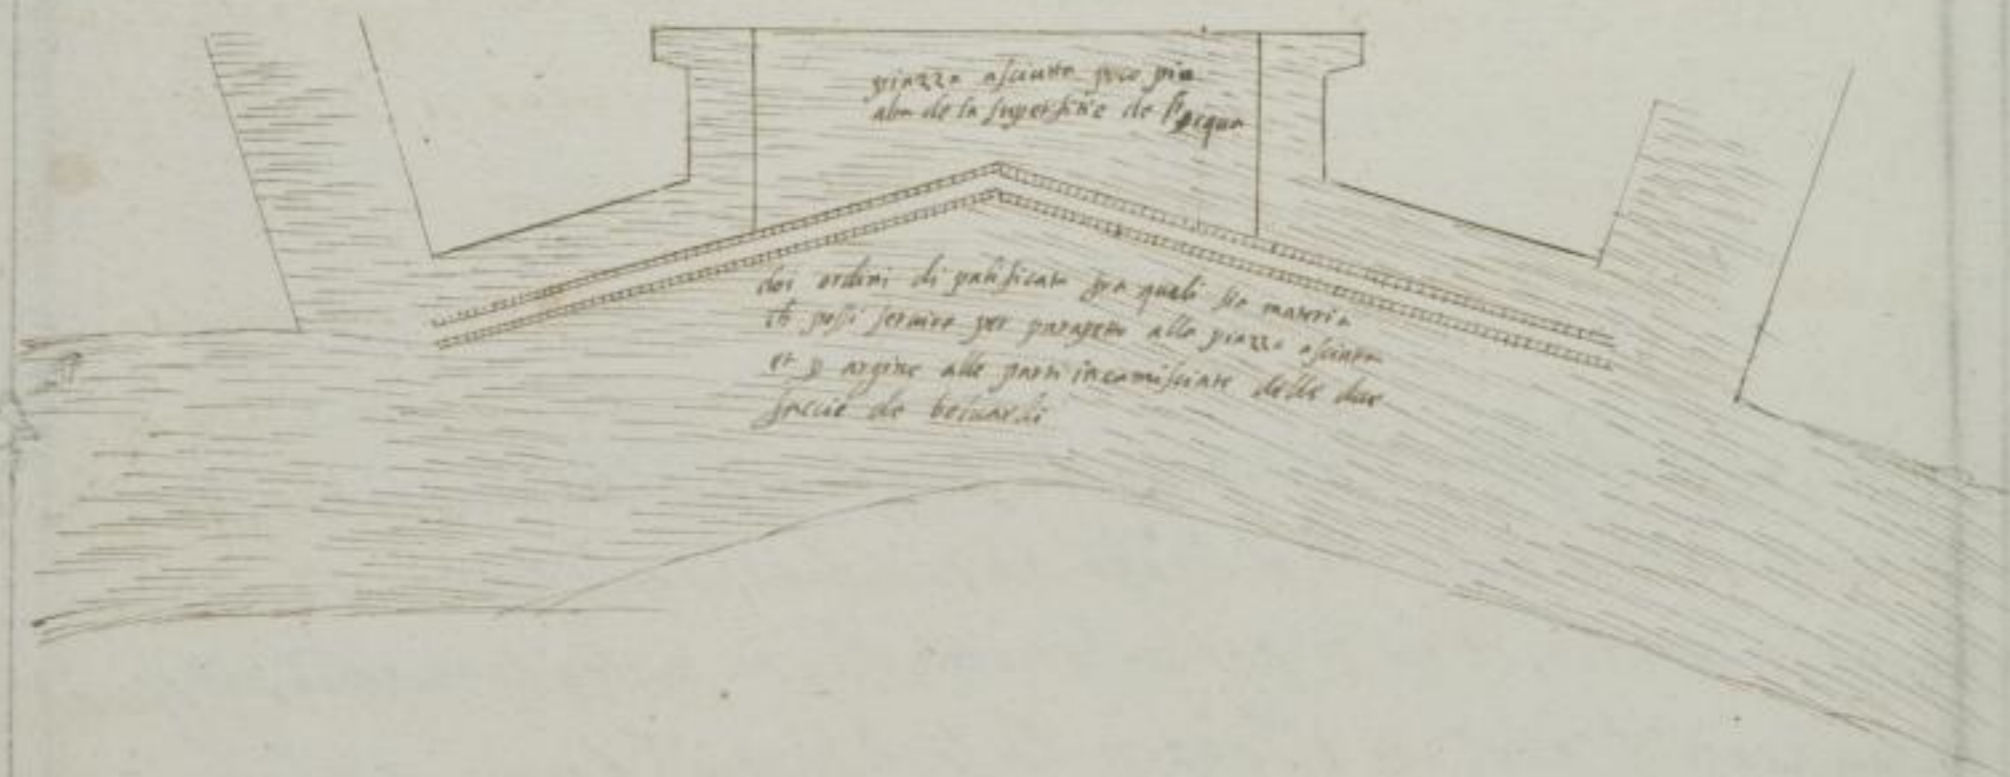 piazza asciutta poco piu
alta de la superfitie de l'acqua
doi ordini di palificate fra quali sia materia
ch possi servire per parapetto alla piazza asciutta
et p argine alle parti incamisciate delle due
faccie de beluardi